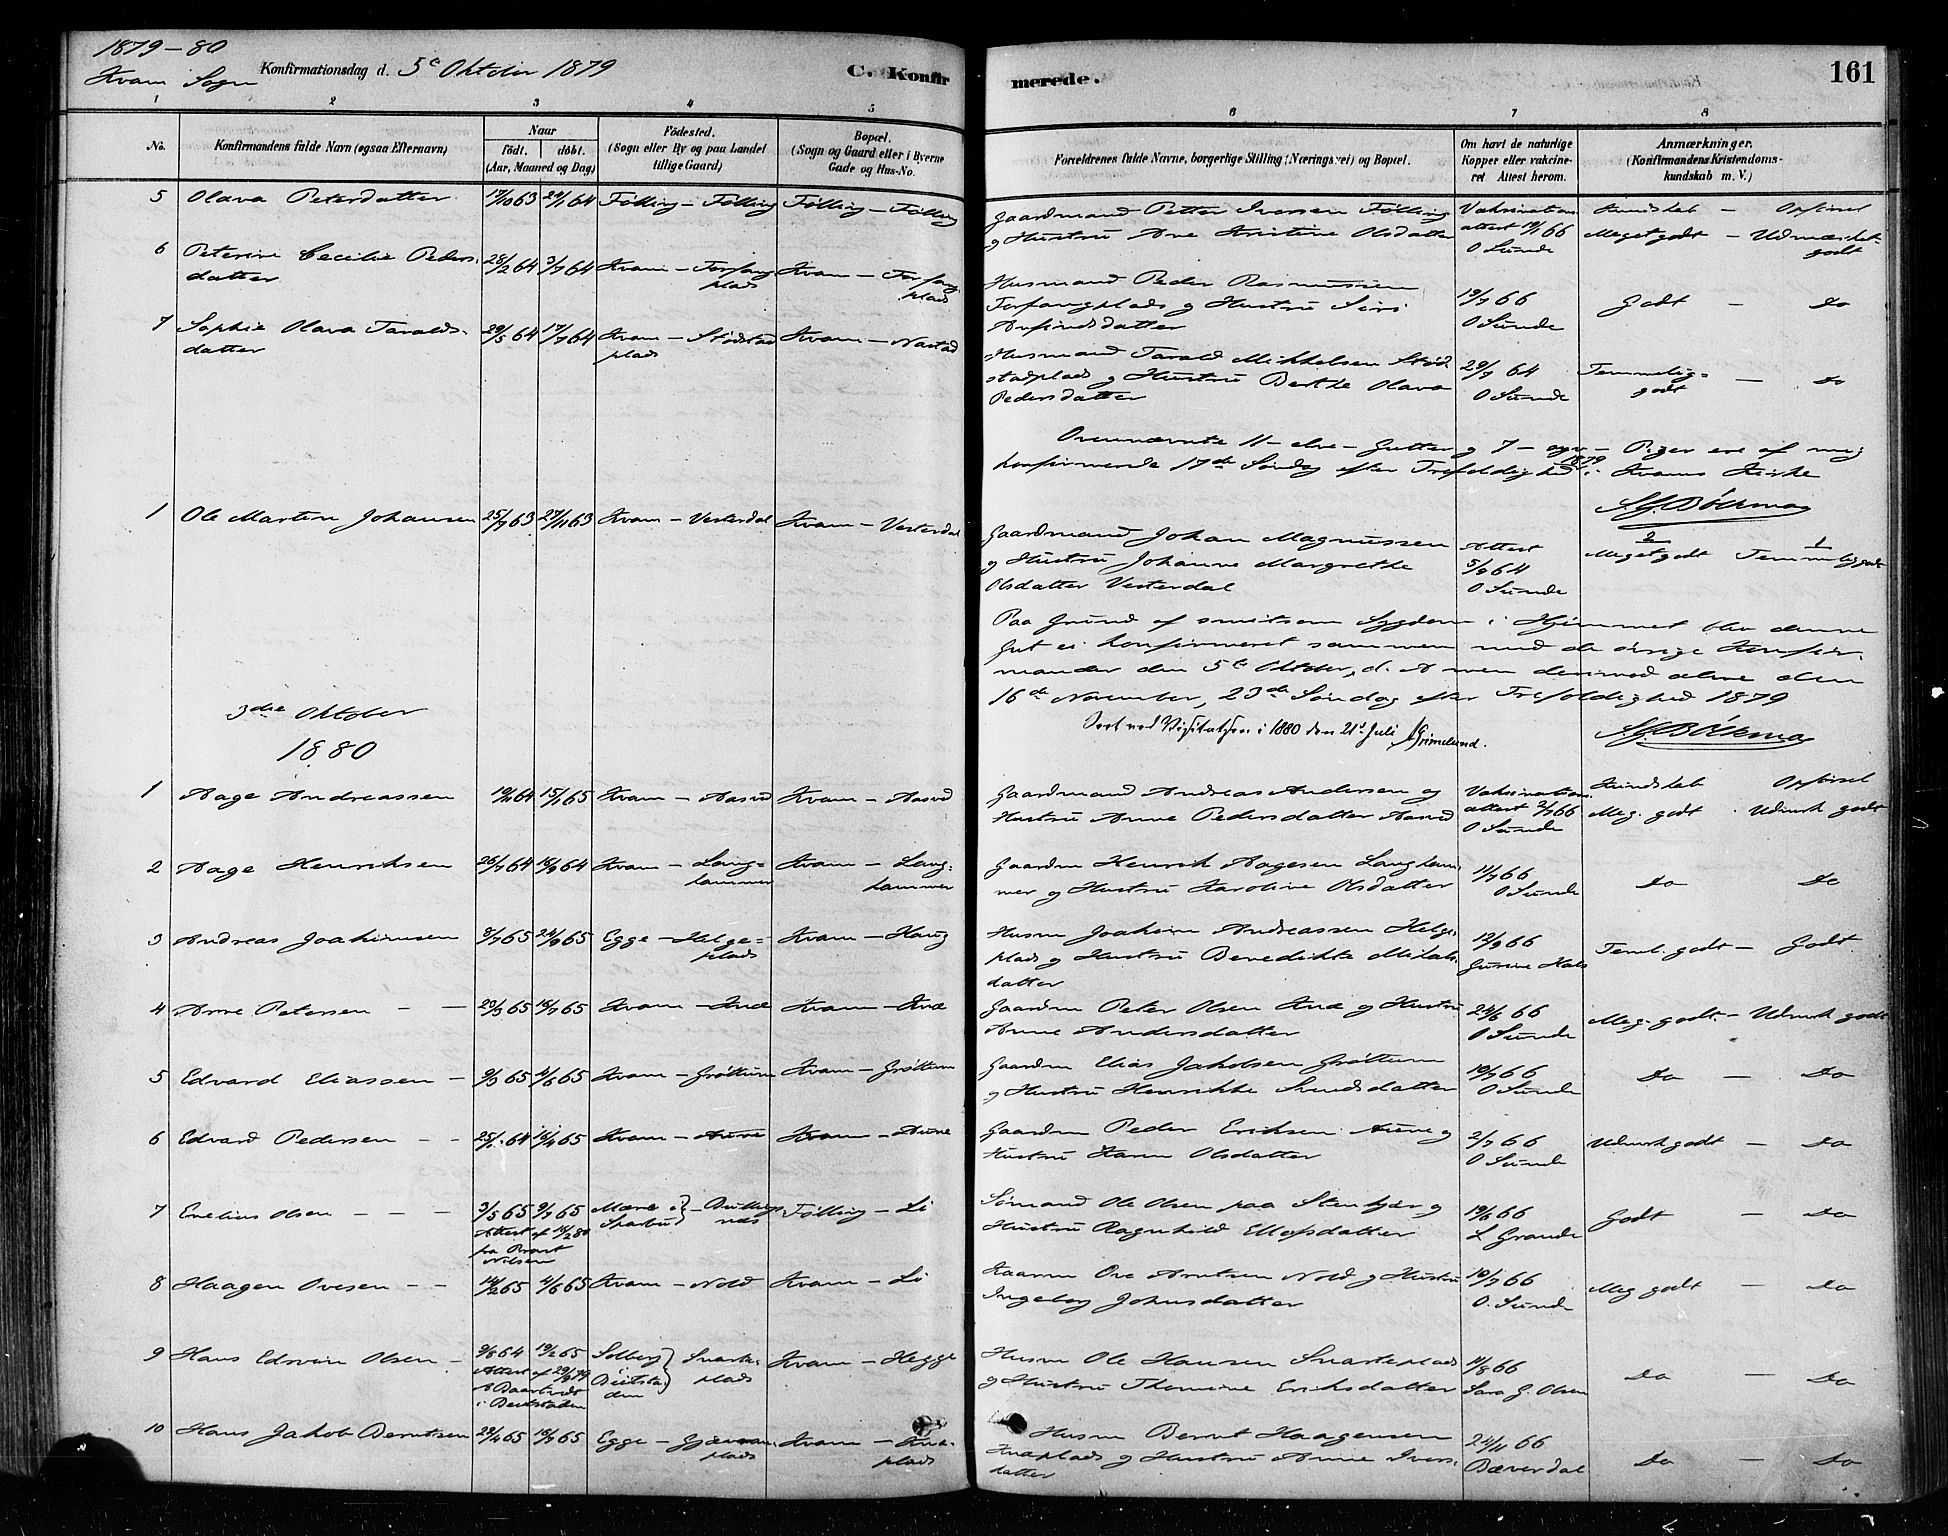 1879-80
Kvam Sogn
Konfirmationsdag d. 5te Oktober 1879
C. Konfirmerede.
161
1 2 3 4 5 6 7 8
No.
Konfirmandens fulde Navn (ogsaa Efternavn)
Naar
födt. döbt.
(Aar, Maaned og Dag)
Födested.
(Sogn eller By og paa Landet
tillige Gaard)
Bopæl.
(Sogn og Gaard eller i Byerne
Gade og Hus-No.
Forældrenes fulde Navne, borgerlige Stilling (Næringsvei) og Bopæl.
Om havt de naturlige
Kopper eller vakcine-
ret Attest herom.
Anmærkninger.
(Konfirmandens Kristendoms-
kundskab m. V.)
5 Olava Petersdatter 17/10 63 24/1 64 Følling - Følling Følling - Følling
Gaardmand Petter Iversen Følling
og Hustru Ane Kristine Olsdatter
Vaksinations
attest 19/11 66
O Sunde
Kundskab - Opførsel
Megetgodt - Udmærket
godt
6 Peterine Cecilie Peders-
datter 28/2 64 3/7 64 Kvam - Forfang
plads
Kvam - Forfang
plads
Husmand Peder Rasmussen
Forfangplads og Hustru Siri
Arfindsdatter
19/7 66
O Sunde
Godt - Do
7 Sophie Olava Taralds-
datter 29/5 64 17/7 64 Kvam - Stødstad
plads
Kvam - Nastad
Husmand Tarald Mikkelsen Stød-
stadplads og Hustru Berthe Olava
Pedersdatter
29/7 64
O Sunde
Temmelig=
godt - Do
Ovennævnte 11 - elve - Gutter og 7 - syv - Piger ere af mig
konfirmerede 17de Søndag efter Trefoldighed 1879 i Kvams Kirke
1 Ole Martin Johansen 25/9 63 27/11 63 Kvam - Vesterdal Kvam - Vesterdal
Gaardmand Johan Magnussen
og Hustru Johanne Margrethe
Olsdatter Vesterdal
Attest
5/9 64
O Sunde
2 1
Megetgodt Temmeliggodt
Paa Grund af smitsom Sygdom i Hjemmet blev denne
Gut ei konfirmeret sammen med de øvrige Konfir-
mander den 5te Oktober, d. A men derimod alene den
16de November, 23de Søndag efter Trefoldighed 1879
Seet ved Visitatsen i 1880 den 21de Juli Grimelund.
3die Oktober
1880
1 Aage Andreassen 19/11 64 15/1 65 Kvam - Aasved Kvam - Aasved
Gaardmand Andreas Andersen og
Hustru Anne Pedersdatter Aasved
Vaksinations
attest 2/7 66
O Sunde
Kundskab Opførsel
Meg. godt - Udmrk godt
2 Aage Henriksen 26/7 64 18/9 64 Kvam - Lang=
hammer
Kvam - Lang-
hammer
Gaardm Henrik Aagesen Langham-
mer og Hustru Karoline Olsdatter
11/7 66
O Sunde
Do Do
3 Andreas Joakimsen 8/7 65 24/9 65 Egge - Helge=
plads
Kvam - Haug
Husm Joakim Andreassen Helge-
plads og Hustru Benedikte Mikals-
datter
12/9 66
Gurine Hals
Teml. godt - Godt
4 Arne Petersen - - 29/3 65 16/7 65 Kvam - Kne Kvam - Kne
Gaardm Peter Olsen Kne og Hustru
Anne Andersdatter
24/6 66
O Sunde
Meg. godt. - Udmrk godt
5 Edvard Eliassen - 9/3 65 4/6 65 Kvam - Grøttum Kvam - Grøttum
Gaardm Elias Jakobsen Grøttum
og Hustru Henrikke Svendsdatter
10/7 66
O Sunde
Do - Do
6 Edvard Pedersen - - 25/ 64 16/4 65 Kvam - Aune Kvam - Aune
Gaardm Peder Eriksen Aune og
Hustru Karen Olsdatter
2/7 66
O Sunde
Udmrk godt - Do
7 Enelius Olsen - - - 3/5 65 9/7 65 Mære i
Sparbu
Følling - Li
Attest af 18/2 80
fra Provst
Nilsen
Sømand Ole Olsen paa Stenkjær og
Hustru Ragnhild Ellefsdatter
19/6 66
L Grande
Godt - Do
8 Haagen Ovesen - - 14/2 65 4/6 65 Kvam - Nold Kvam - Li
Ove Arntsen Nold og Hustru
Ingeborg Johnsdatter
10/7 66
O. Sunde
Meg godt - Do
9 Hans Edvin Olsen - 9/8 64 19/2 65 Solberg
i Beitsta-
den
Svarte-
plads
Kvam - Hegge
Attest af 29/9 79
i Beitstaden
Husm Ole Hansen Svarteplads
og Hustru Thomine Eriksdatter
11/8 66
Sara G. Olsen
Do - Do
10 Hans Jakob Berntsen 29/4 65 16/7 65 Egge -
plads
Kvam - Kne-
plads
Husm Bernt Haagensen
Kneplads og Hustru Anne Ivers-
datter
24/11 66
Bæverdal
Do - Do